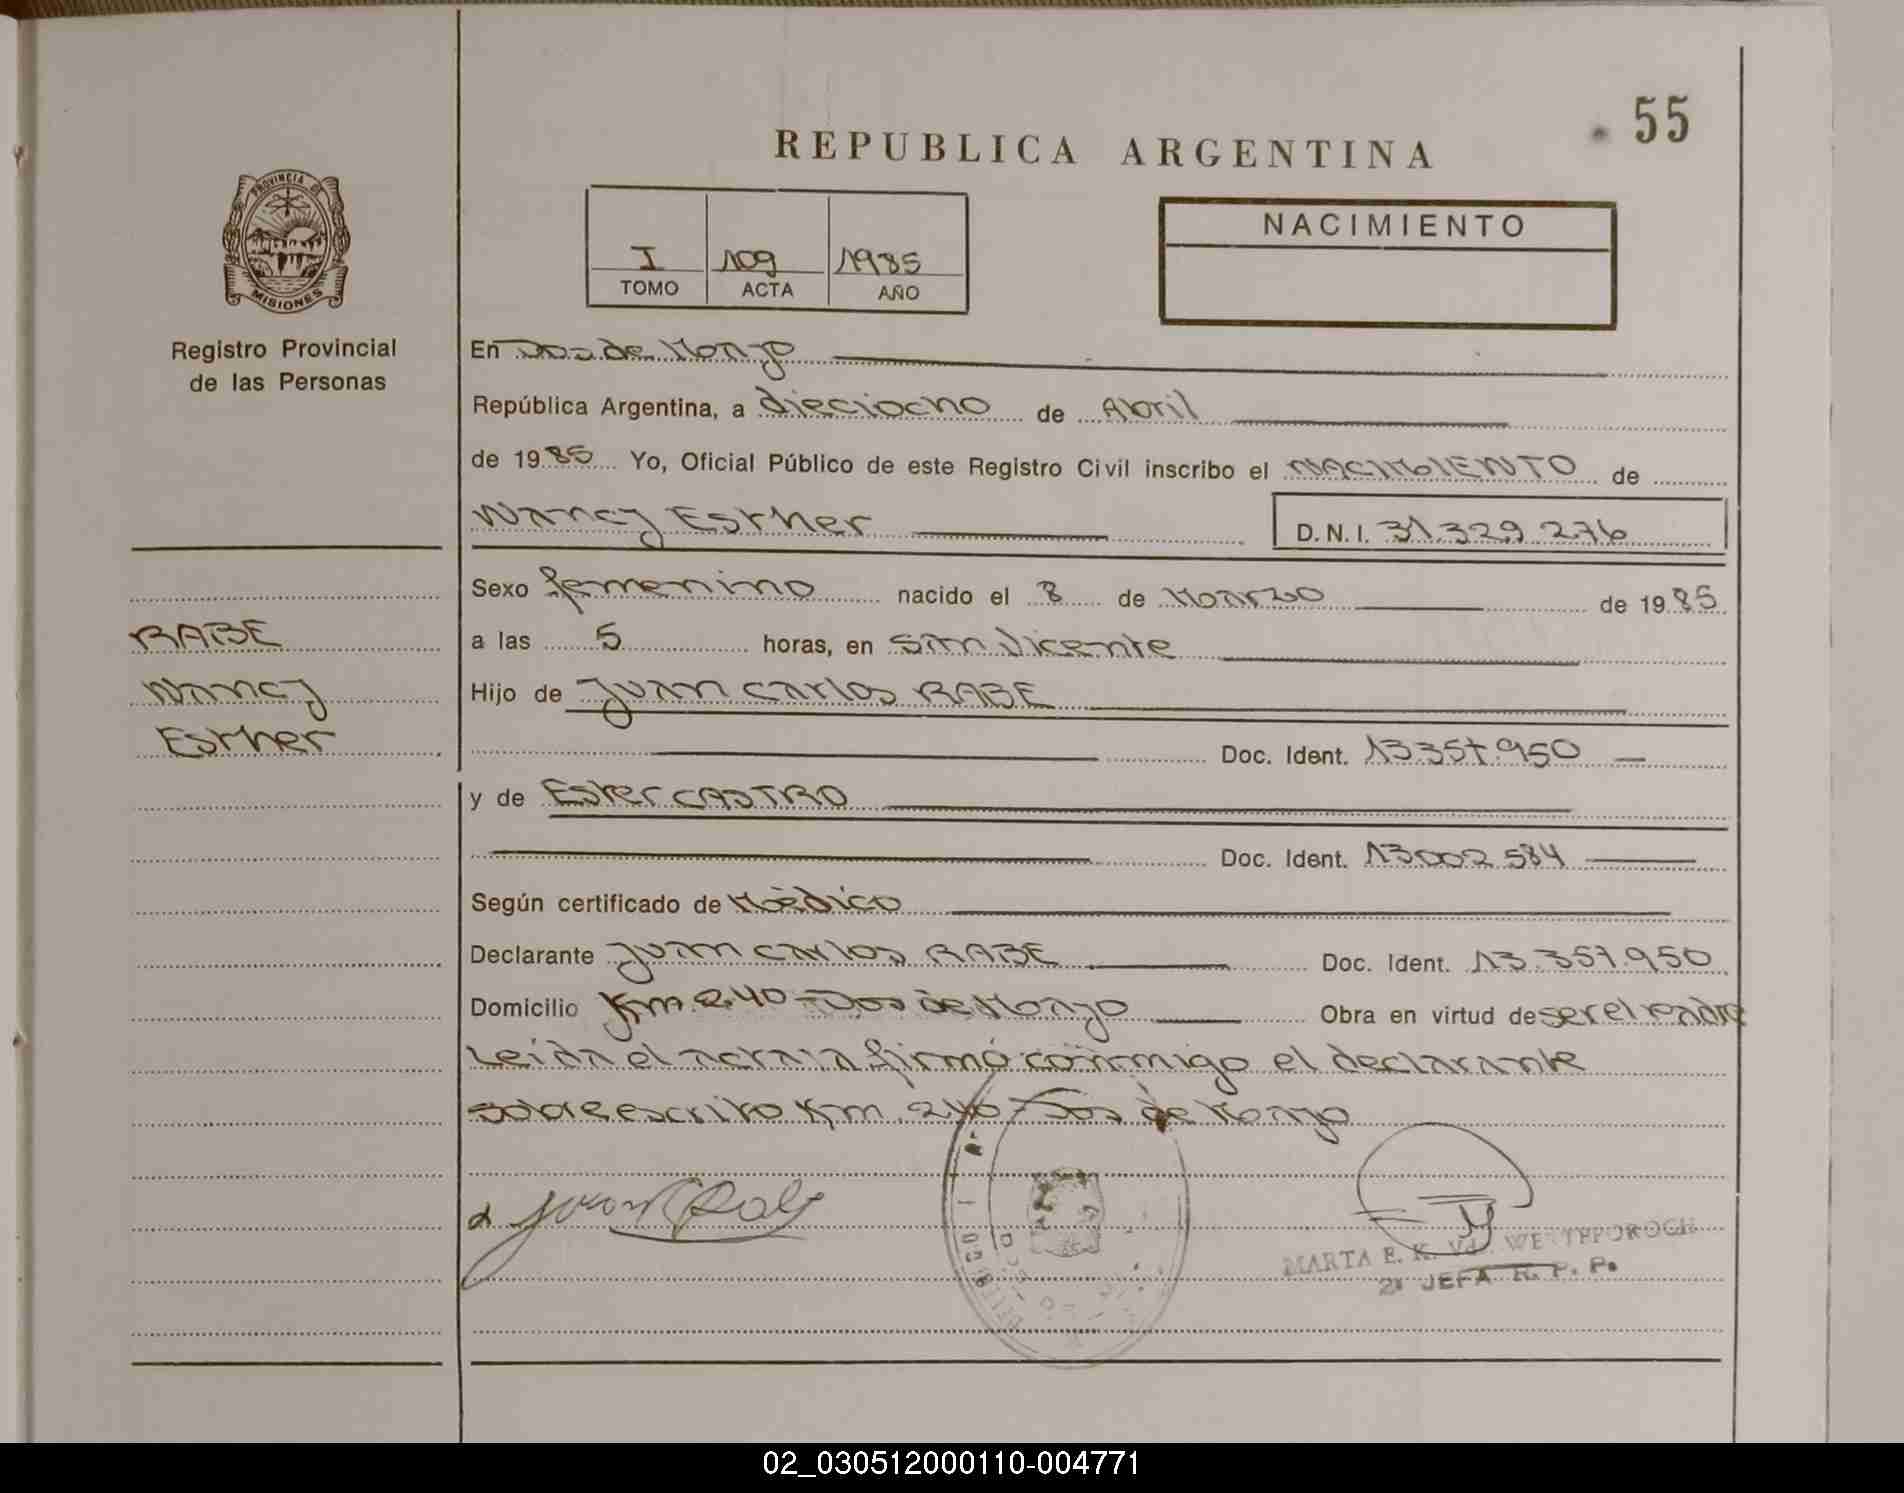 55
REPUBLICA ARGENTINA
PROVINCIA DE
MISIONES
Registro Provincial
de las Personas
I 109 1985
TOMO ACTA AÑO
NACIMIENTO
En Dos de Mayo
República Argentina, a dieciocho de Abril
de 1985 Yo, Oficial Público de este Registro Civil inscribo el NACIMIENTO de
Nancy Esther D.N.I. 31.329.276
RABE
Nancy
Esther
Sexo femenino nacido el 8 de Marzo de 1985
a las 5 horas, en San Vicente
Hijo de Juan Carlos RABE
Doc. Ident. 13.357.950
y de Ester CASTRO
Doc. Ident. 13002584
Según certificado de Médico
Declarante Juan Carlos RABE Doc. Ident. 13.357.950
Domicilio Km. 240 - Dos de Mayo Obra en virtud de ser el padre
Leída el acta la firmó conmigo el declarante
sobreescrito Km. 240 - Dos de Mayo
MARTA E. K. Vd.
2a JEFA R. P. P.
02_030512000110-004771